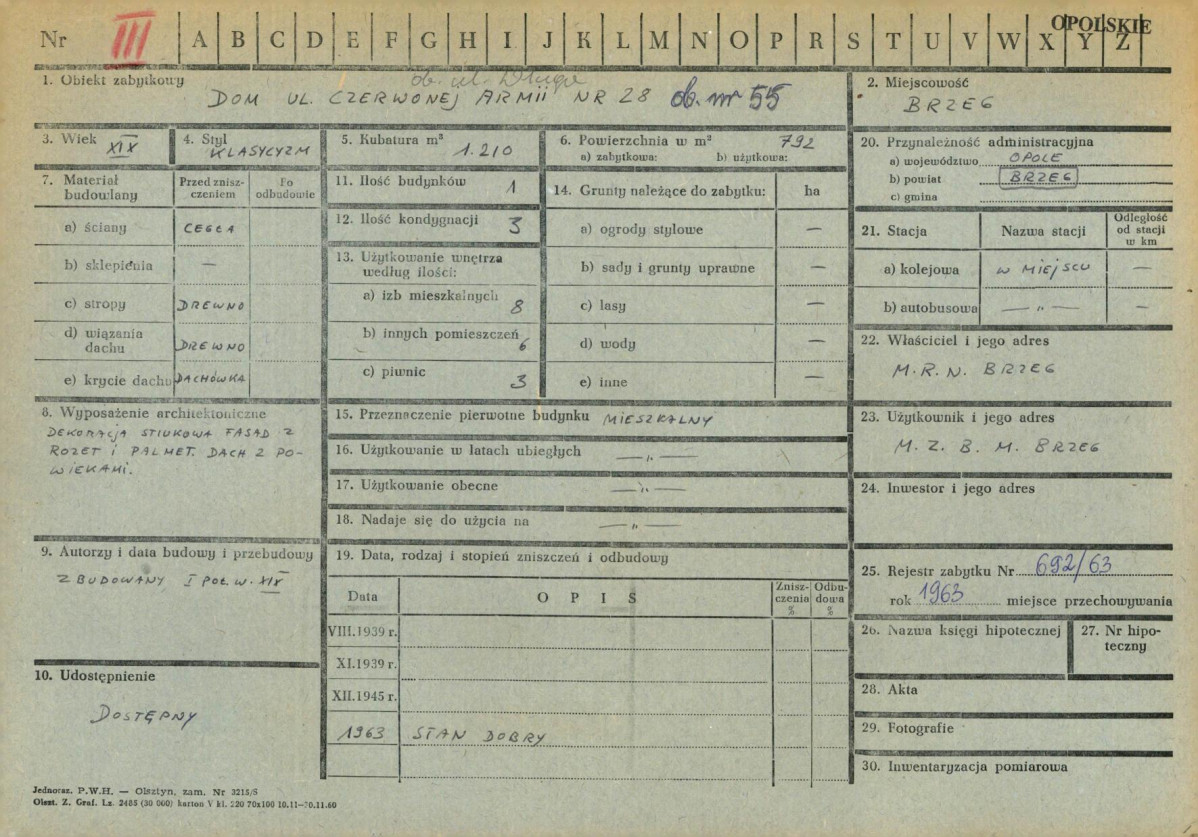 OPOLSKIE
Nr III A B C D E F G H I J K L M N O P R S T U V W X Y Z
1. Obiekt zabytkowy
ob. ul. Długa
DOM UL. CZERWONEJ ARMII NR 28 ob. nr 55
2. Miejscowość
BRZEG
3. Wiek
XIX
4. Styl
KLASYCYZM
5. Kubatura m³
1.210
6. Powierzchnia w m² 792
a) zabytkowa: b) użytkowa:
20. Przynależność administracyjna
a) województwo OPOLE
b) powiat BRZEG
c) gmina
7. Materiał budowlany
Przed zniszczeniem
Po odbudowie
a) ściany CEGŁA
b) sklepienia —
c) stropy DREWNO
d) wiązania dachu DREWNO
e) krycie dachu DACHÓWKA
11. Ilość budynków 1
12. Ilość kondygnacji 3
13. Użytkowanie wnętrza
według ilości:
a) izb mieszkalnych 8
b) innych pomieszczeń 6
c) piwnic 3
14. Grunty należące do zabytku: ha
a) ogrody stylowe —
b) sady i grunty uprawne —
c) lasy —
d) wody —
e) inne —
21. Stacja
Nazwa stacji
Odległość
od stacji
w km
a) kolejowa W MIEJSCU —
b) autobusowa — „ — —
22. Właściciel i jego adres
M.R.N. BRZEG
8. Wyposażenie architektoniczne
DEKORACJA STIUKOWA FASAD Z
ROZET I PALMET. DACH Z PO-
WIEKAMI.
15. Przeznaczenie pierwotne budynku MIESZKALNY
16. Użytkowanie w latach ubiegłych — „ —
17. Użytkowanie obecne — „ —
18. Nadaje się do użycia na — „ —
23. Użytkownik i jego adres
M. Z. B. M. BRZEG
24. Inwestor i jego adres
9. Autorzy i data budowy i przebudowy
ZBUDOWANY I POŁ. W. XIX
19. Data, rodzaj i stopień zniszczeń i odbudowy
Data
O P I S
Znisz-
czenia
%
Odbu-
dowa
%
VIII.1939 r.
XI.1939 r.
XII.1945 r.
1963 STAN DOBRY
25. Rejestr zabytku Nr 692/63
rok 1963 miejsce przechowywania
26. Nazwa księgi hipotecznej
27. Nr hipo-
teczny
10. Udostępnienie
DOSTĘPNY
28. Akta
29. Fotografie
30. Inwentaryzacja pomiarowa
Jednoraz. P.W.H. — Olsztyn, zam. Nr 3215/S
Olszt. Z. Graf. Lz. 2485 (30 000) karton V kl. 220 70x100 10.11—30.11.60